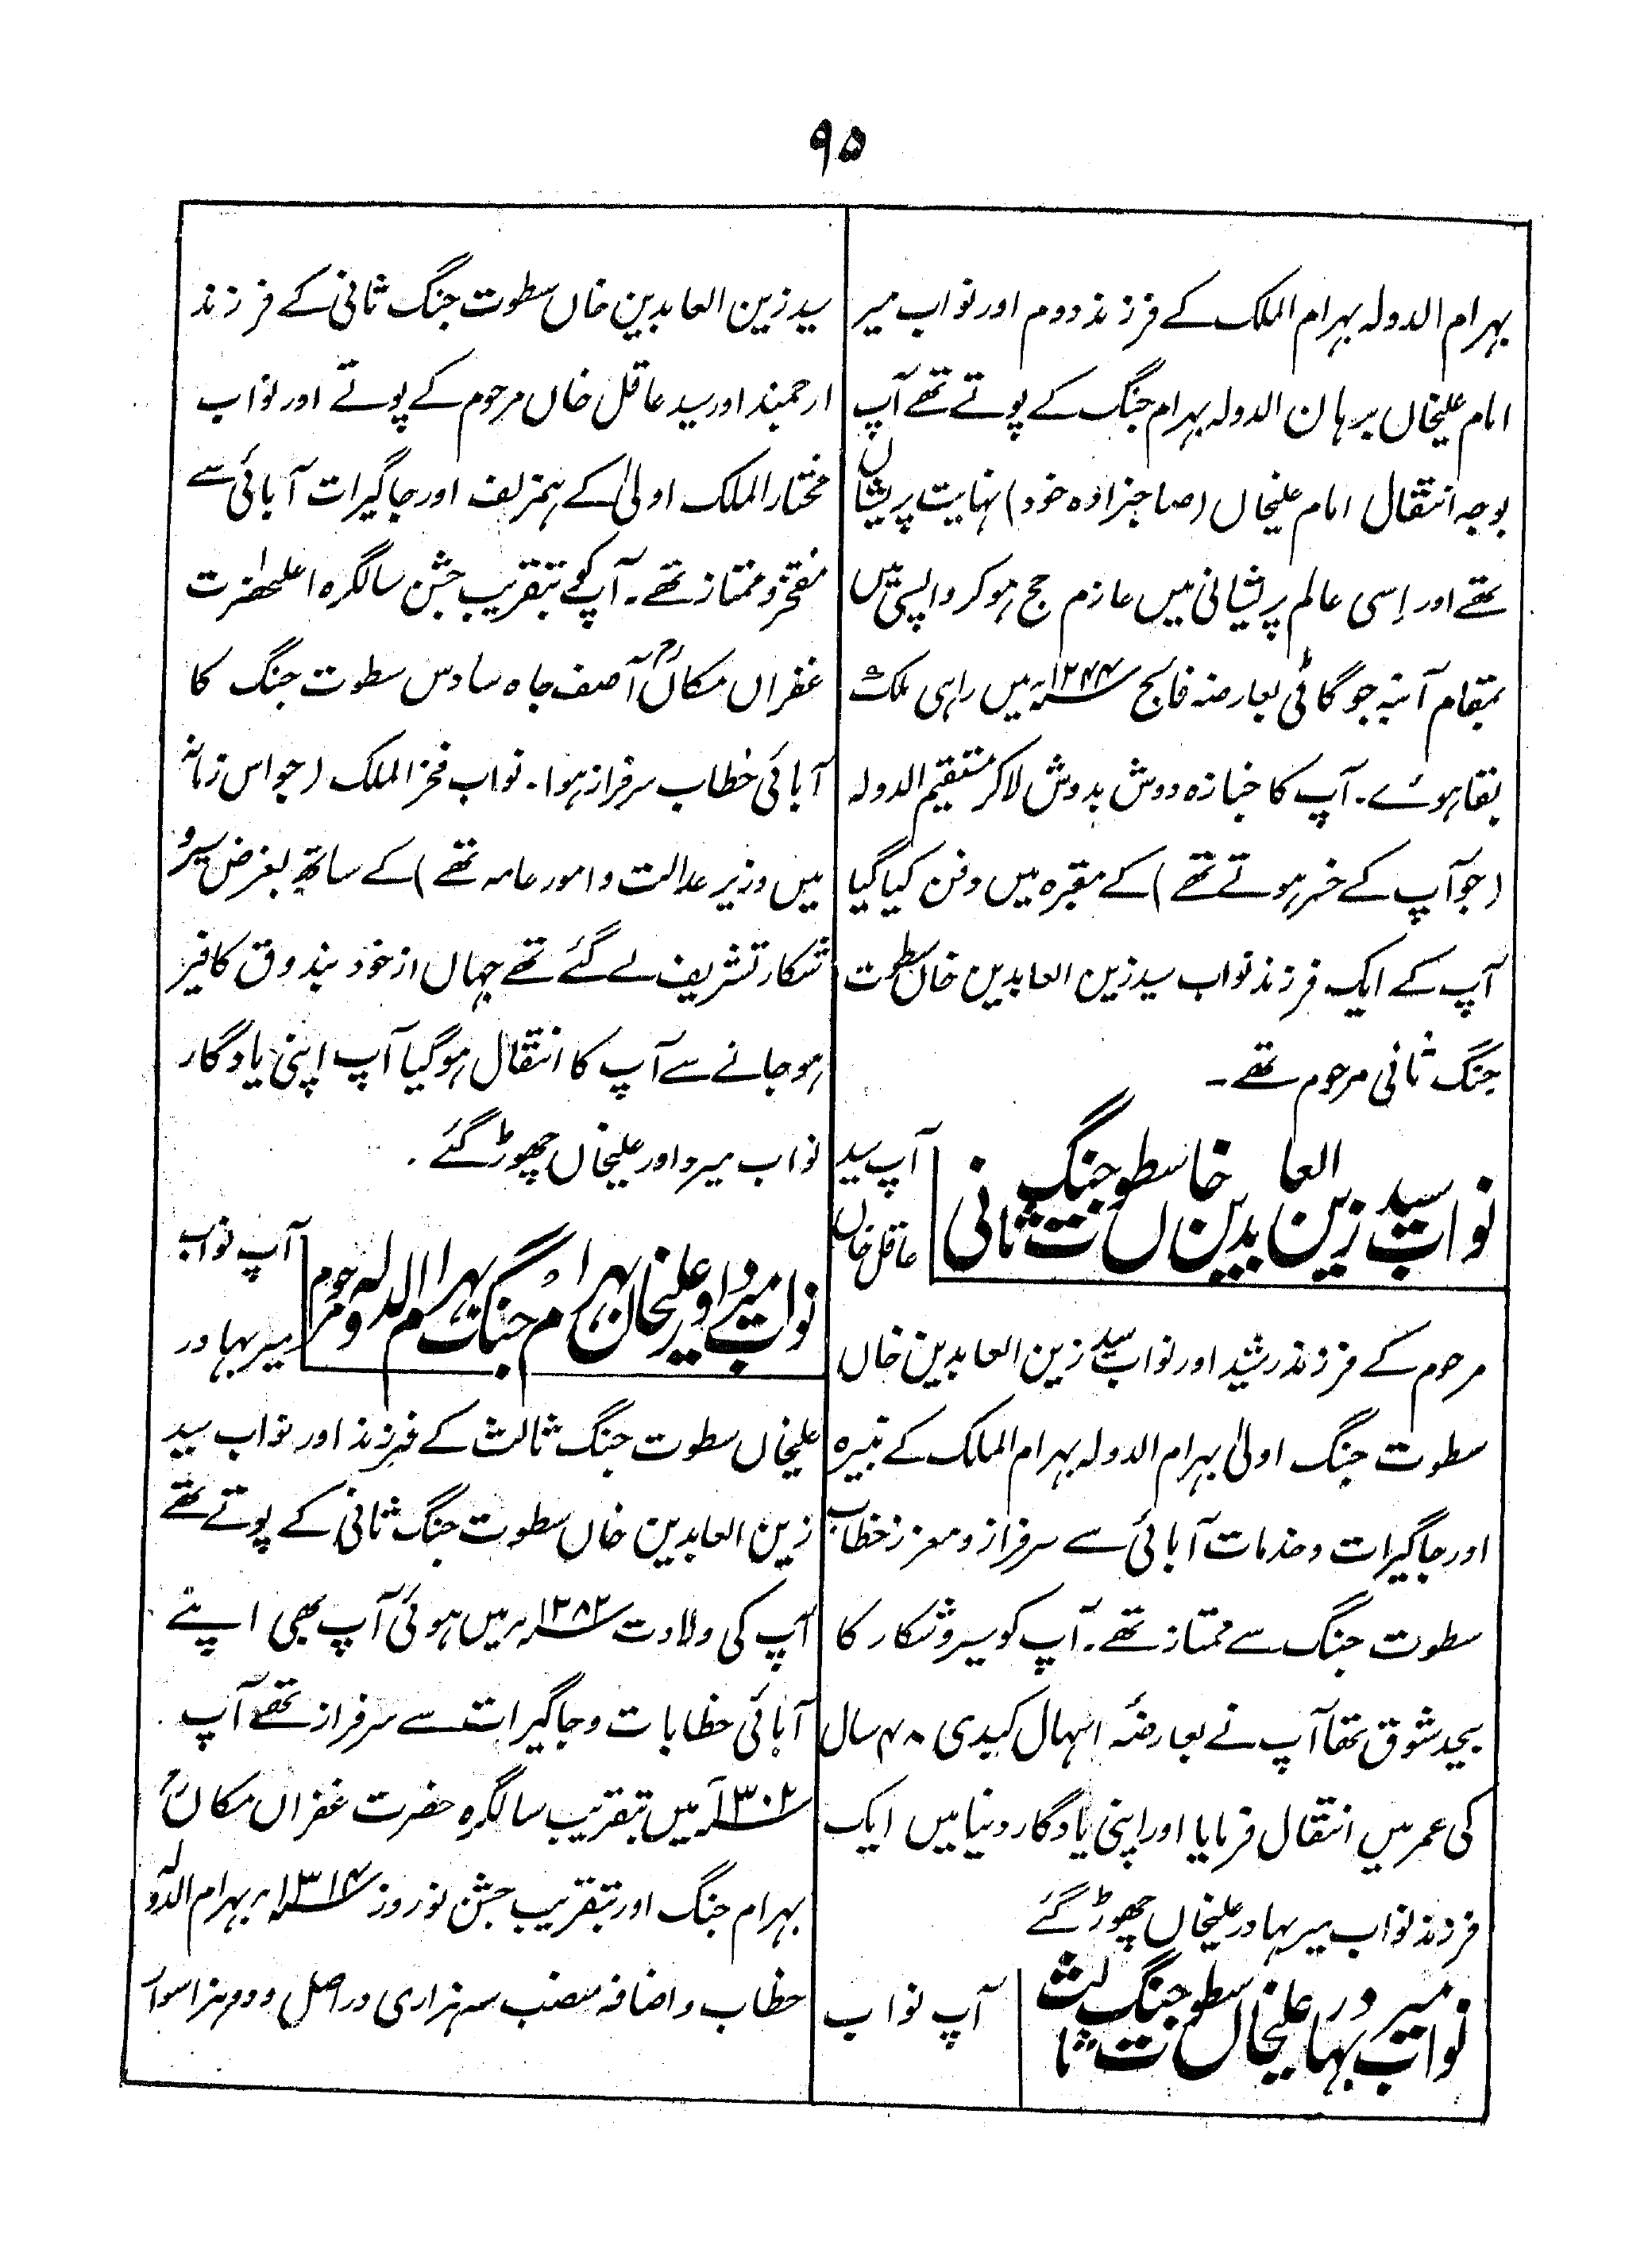 ۹۵
بہرام الدولہ بہرام الملک کے فرزند دوم اور نواب میر
امام علیخاں برہان الدولہ بہرام جنگ کے پوتے تھے آپ
بوجہ انتقال امام علیخاں (صاحبزادہ خود) نہایت پریشاں
تھے اور اِسی عالم پریشانی میں عازم حج ہوکر واپسی میں
بمقام آنبہ جوگائی بعارضہ فالج ۱۲۴۴ھ میں راہی ملک
بقا ہوئے۔ آپ کا جنازہ دوش بدوش لاکر مستقیم الدولہ
(جو آپ کے خسر ہوتے تھے) کے مقبرہ میں دفن کیا گیا
آپ کے ایک فرزند نواب سید زین العابدین خاں سطوت
جنگ ثانی مرحوم تھے۔
نواب سید زین العابدین خاں سطوت جنگ ثانی
آپ سید
عاقل خاں
مرحوم کے فرزند رشید اور نواب سید زین العابدین خاں
سطوت جنگ اولیٰ بہرام الدولہ بہرام الملک کے نبیرہ
اور جاگیرات و خدمات آبائی سے سرفراز و معزز خطاب
سطوت جنگ سے ممتاز تھے۔ آپ کو سیر و شکار کا
بیحد شوق تھا آپ نے بعارضۂ اسہال کبدی ۴۸ سال
کی عمر میں انتقال فرمایا اور اپنی یادگار دنیا میں ایک
فرزند نواب میر بہادر علیخاں چھوڑ گئے
نواب میر بہادر علیخاں سطوت جنگ ثالث
آپ نواب
سید زین العابدین خاں سطوت جنگ ثانی کے فرزند
ارجمند اور سید عاقل خاں مرحوم کے پوتے اور نواب
مختار الملک اولیٰ کے ہمزلف اور جاگیرات آبائی سے
مفتخر و ممتاز تھے۔ آپ کو بتقریب جشن سالگرہ اعلیٰحضرت
غفراں مکاںؒ آصف جاہ سادس سطوت جنگ کا
آبائی خطاب سرفراز ہوا۔ نواب فخر الملک (جو اس زمانہ
میں وزیر عدالت و امور عامہ تھے) کے ساتھ بغرض سیر و
شکار تشریف لے گئے تھے جہاں از خود بندوق کا فیر
ہو جانے سے آپ کا انتقال ہو گیا آپ اپنی یادگار
نواب میر داور علیخاں چھوڑ گئے۔
نواب میر داور علیخاں بہرام جنگ بہرام الدولہ مرحوم
آپ نواب
میر بہادر
علیخاں سطوت جنگ ثالث کے فرزند اور نواب سید
زین العابدین خاں سطوت جنگ ثانی کے پوتے تھے
آپ کی ولادت ۱۲۸۲ھ میں ہوئی آپ بھی اپنے
آبائی خطابات و جاگیرات سے سرفراز تھے آپ
۱۳۰۲ میں بتقریب سالگرہ حضرت غفراں مکاںؒ
بہرام جنگ اور بتقریب جشن نوروز ۱۳۱۴ھ بہرام الدولہ
خطاب و اضافہ منصب سہ ہزاری در اصل و دو ہزار سوار